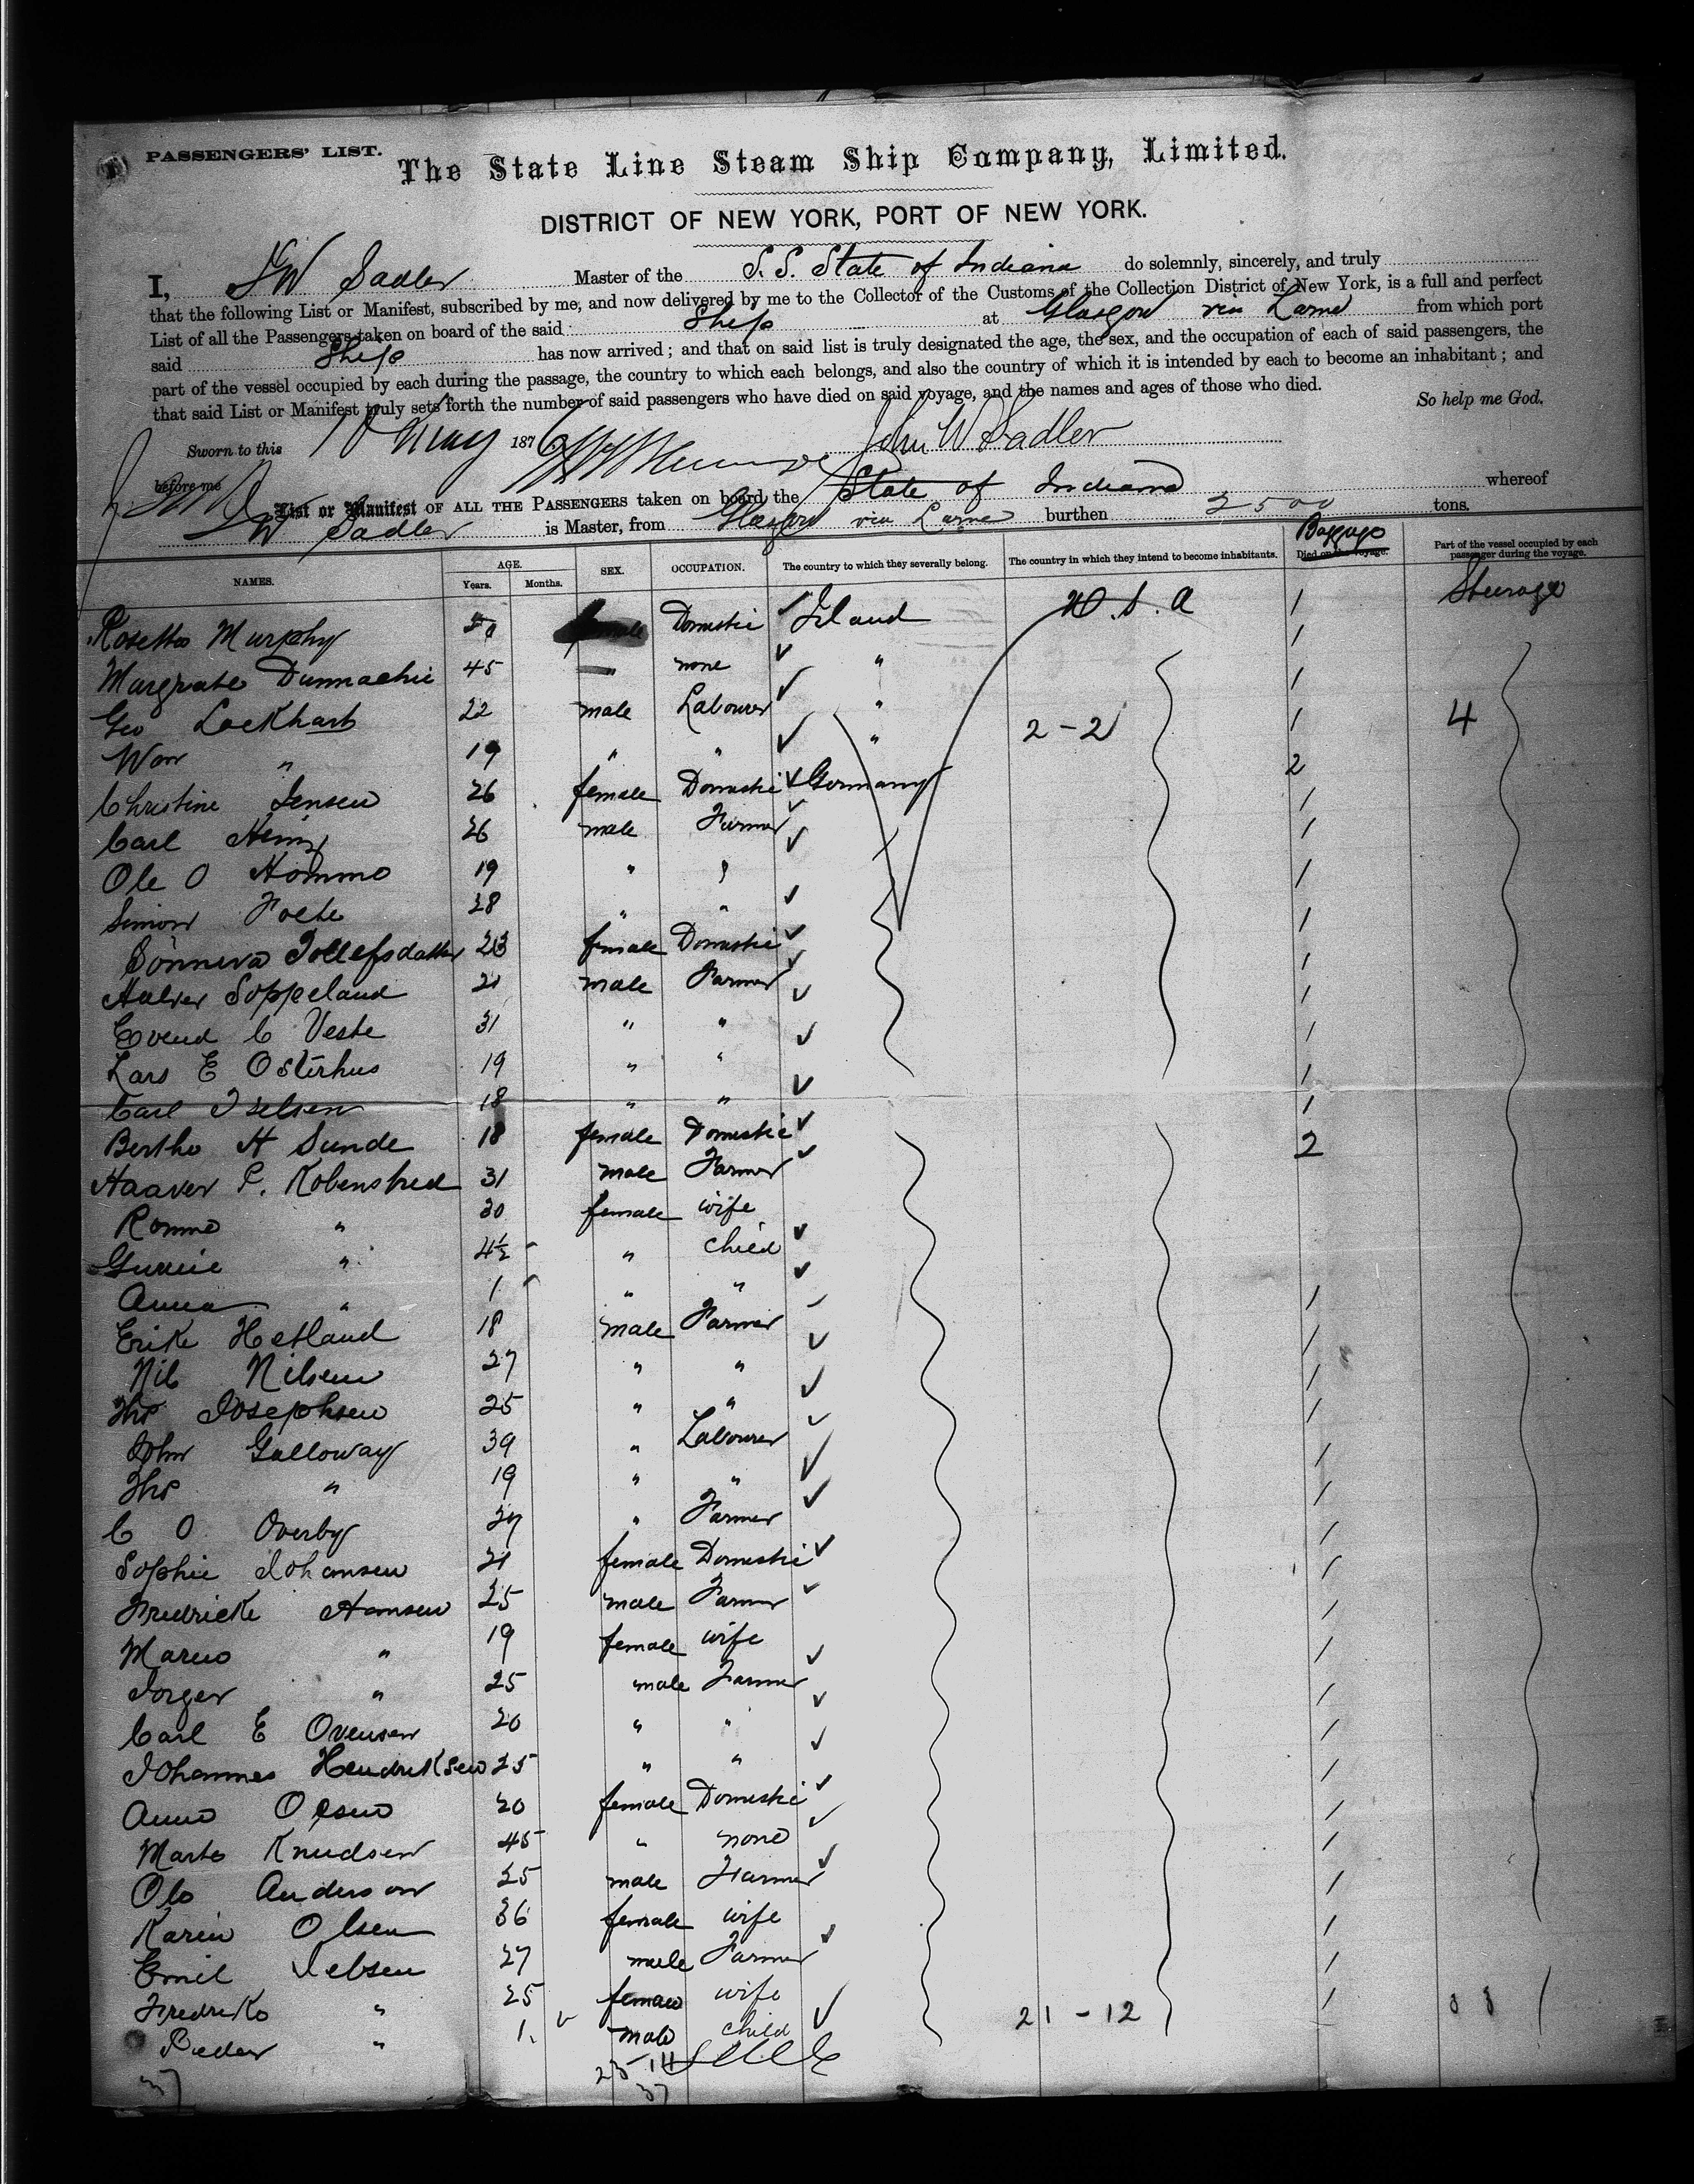 PASSENGERS' LIST.
The State Line Steam Ship Company, Limited.
DISTRICT OF NEW YORK, PORT OF NEW YORK.
I, JW Sadler Master of the S.S. State of Indiana do solemnly, sincerely, and truly
that the following List or Manifest, subscribed by me, and now delivered by me to the Collector of the Customs of the Collection District of New York, is a full and perfect
List of all the Passengers taken on board of the said Ship at Glasgow via Larne from which port
said Ship has now arrived; and that on said list is truly designated the age, the sex, and the occupation of each of said passengers, the
part of the vessel occupied by each during the passage, the country to which each belongs, and also the country of which it is intended by each to become an inhabitant; and
that said List or Manifest truly sets forth the number of said passengers who have died on said voyage, and the names and ages of those who died.
So help me God.
Sworn to this 10 May 1876 John W Sadler
before me
List or Manifest OF ALL THE PASSENGERS taken on board the State of Indiana whereof
JW Sadler is Master, from Glasgow via Larne burthen 2500 tons.
NAMES. AGE. Years. Months. SEX. OCCUPATION. The country to which they severally belong. The country in which they intend to become inhabitants. Baggage Died on the voyage. Part of the vessel occupied by each passenger during the voyage.
Rosetta Murphy Domestic Ireland U.S.A 1 Steerage
Margrate Dunnachie 45 none " 1
Geo Lockhart 22 male Labourer " 1
Wm " 19 " " " 2-2 1 4
Christine Jensen 26 female Domestic Germany 2
Carl 26 male Farmer 1
Ole O Hommo 19 " " 1
Simon 28 " " 1
Sonneva Tollefsdatter 23 female Domestic 1
Halver Soppeland 21 male Farmer 1
Evend C Veste 31 " " 1
Lars E Osterhus 19 " " 1
Carl 18 " " 1
Bertha H Sunde 18 female Domestic 1
Haaver P. 31 male Farmer 2
" 30 female wife
" 4½ " child
Anna " 1 " "
Erik Hetland 18 male Farmer 1
Nils Nilsen 27 " " 1
Thos Josephsen 25 " " 1
John Galloway 39 " Labourer 1
Thos " 19 " " 1
C O Overby " Farmer 1
Sophie Johansen 21 female Domestic 1
Fredricke Hansen 25 male Farmer 1
Maren " 19 female wife 1
Jorger " 25 male Farmer 1
Carl E Ovensen 20 " " 1
Johannes Hendriksen 25 " " 1
Anna Olsen 20 female Domestic 1
Marta Knudsen 45 " none 1
Ole Anderson 25 male Farmer 1
Karin Olsen 36 female wife 1
Emil Jebsen 27 male Farmer 1
Fredrika " 25 female wife 21-12 1
Peder " 1 male child
37